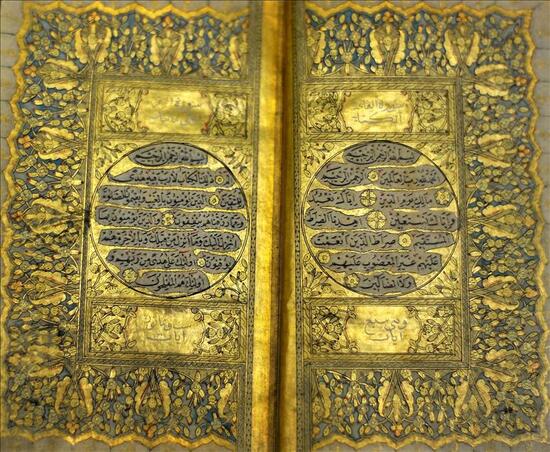 سورة الفاتحة
بسم الله الرحمن الرحيم
الحمد لله رب العالمين الرحمن الرحيم
مالك يوم الدين اياك نعبد
واياك نستعين اهدنا الصراط
المستقيم صراط الذين انعمت
عليهم غير المغضوب عليهم
ولا الضالين
وهي سبع
آيات
سورة
بسم الله الرحمن الرحيم
الم ذلك الكتاب لا ريب فيه هدى
للمتقين الذين يؤمنون بالغيب ويقيمون الصلوة
ومما رزقناهم ينفقون والذين يؤمنون بما
انزل اليك وما انزل من قبلك وبالاخرة
هم يوقنون اولئك على هدى من ربهم و
اولئك هم المفلحون